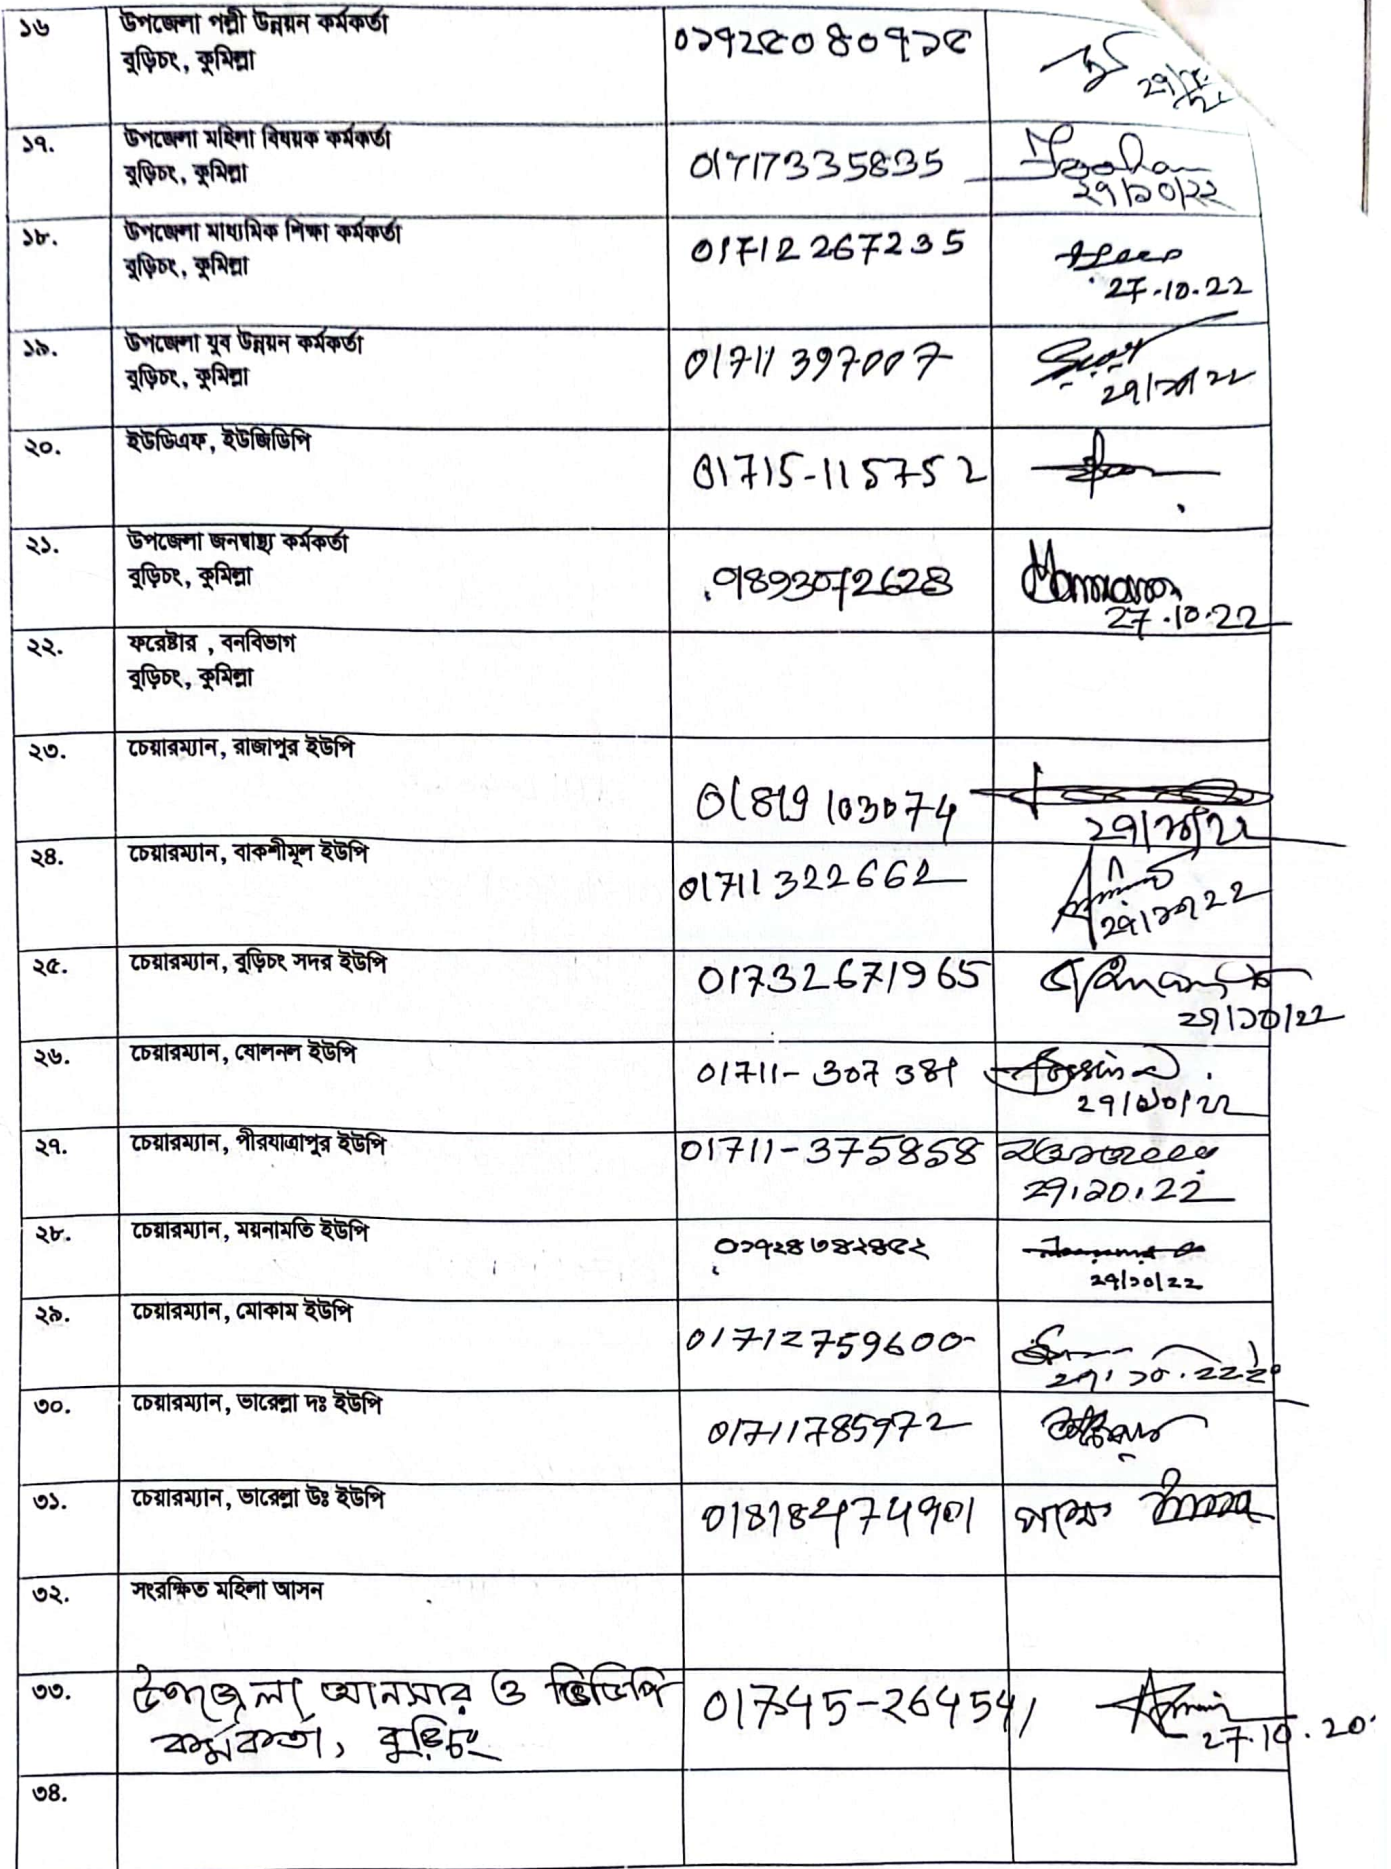 ১৬ উপজেলা পল্লী উন্নয়ন কর্মকর্তা ০১৭২৫০৪০৭১৫
বুড়িচং, কুমিল্লা
১৭. উপজেলা মহিলা বিষয়ক কর্মকর্তা
বুড়িচং, কুমিল্লা 01717335835
২৭/১০/২২
১৮. উপজেলা মাধ্যমিক শিক্ষা কর্মকর্তা 01712267235
বুড়িচং, কুমিল্লা
27.10.22
১৯. উপজেলা যুব উন্নয়ন কর্মকর্তা 01711397007
বুড়িচং, কুমিল্লা
২৭/১০/২২
২০. ইউডিএফ, ইউজিডিপি
01715-115752
২১. উপজেলা জনস্বাস্থ্য কর্মকর্তা
বুড়িচং, কুমিল্লা
27.10.22
২২. ফরেষ্টার , বনবিভাগ
বুড়িচং, কুমিল্লা
২৩. চেয়ারম্যান, রাজাপুর ইউপি
01819103074
২৭/১০/২২
২৪. চেয়ারম্যান, বাকশীমূল ইউপি
01711322662
২৭/১০/২২
২৫. চেয়ারম্যান, বুড়িচং সদর ইউপি 01732671965
২৭/১০/২২
২৬. চেয়ারম্যান, ষোলনল ইউপি
01711-307381
২৭/১০/২২
২৭. চেয়ারম্যান, পীরযাত্রাপুর ইউপি 01711-375858
২৭.১০.২২
২৮. চেয়ারম্যান, ময়নামতি ইউপি
২৭/১০/২২
২৯. চেয়ারম্যান, মোকাম ইউপি
01712759600
৩০. চেয়ারম্যান, ভারেল্লা দঃ ইউপি
01711785972
৩১. চেয়ারম্যান, ভারেল্লা উঃ ইউপি
01818474901
৩২. সংরক্ষিত মহিলা আসন
৩৩. উপজেলা আনসার ও ভিডিপি 01745-264541
কর্মকর্তা, বুড়িচং 27.10.20
৩৪.